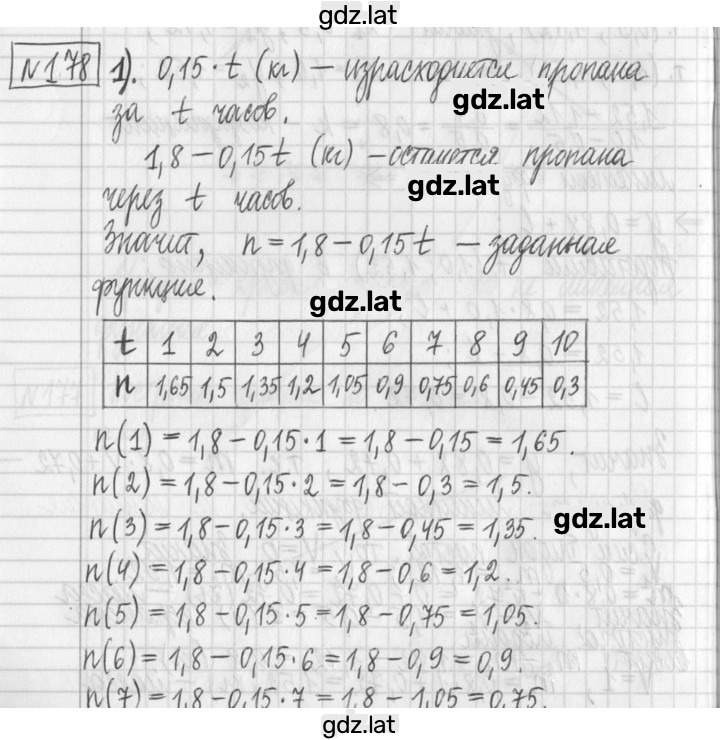 gdz.lat
№178 1). 0,15·t (кг) – израсходуется пропана
gdz.lat
за t часов.
1,8 – 0,15t (кг) – останется пропана
gdz.lat
через t часов.
Значит, n = 1,8 – 0,15t – заданная
функция.
gdz.lat
t 1 2 3 4 5 6 7 8 9 10
n 1,65 1,5 1,35 1,2 1,05 0,9 0,75 0,6 0,45 0,3
n(1) = 1,8 – 0,15·1 = 1,8 – 0,15 = 1,65.
n(2) = 1,8 – 0,15·2 = 1,8 – 0,3 = 1,5.
n(3) = 1,8 – 0,15·3 = 1,8 – 0,45 = 1,35.
gdz.lat
n(4) = 1,8 – 0,15·4 = 1,8 – 0,6 = 1,2.
n(5) = 1,8 – 0,15·5 = 1,8 – 0,75 = 1,05.
n(6) = 1,8 – 0,15·6 = 1,8 – 0,9 = 0,9.
n(7) = 1,8 – 0,15·7 = 1,8 – 1,05 = 0,75.
gdz.lat